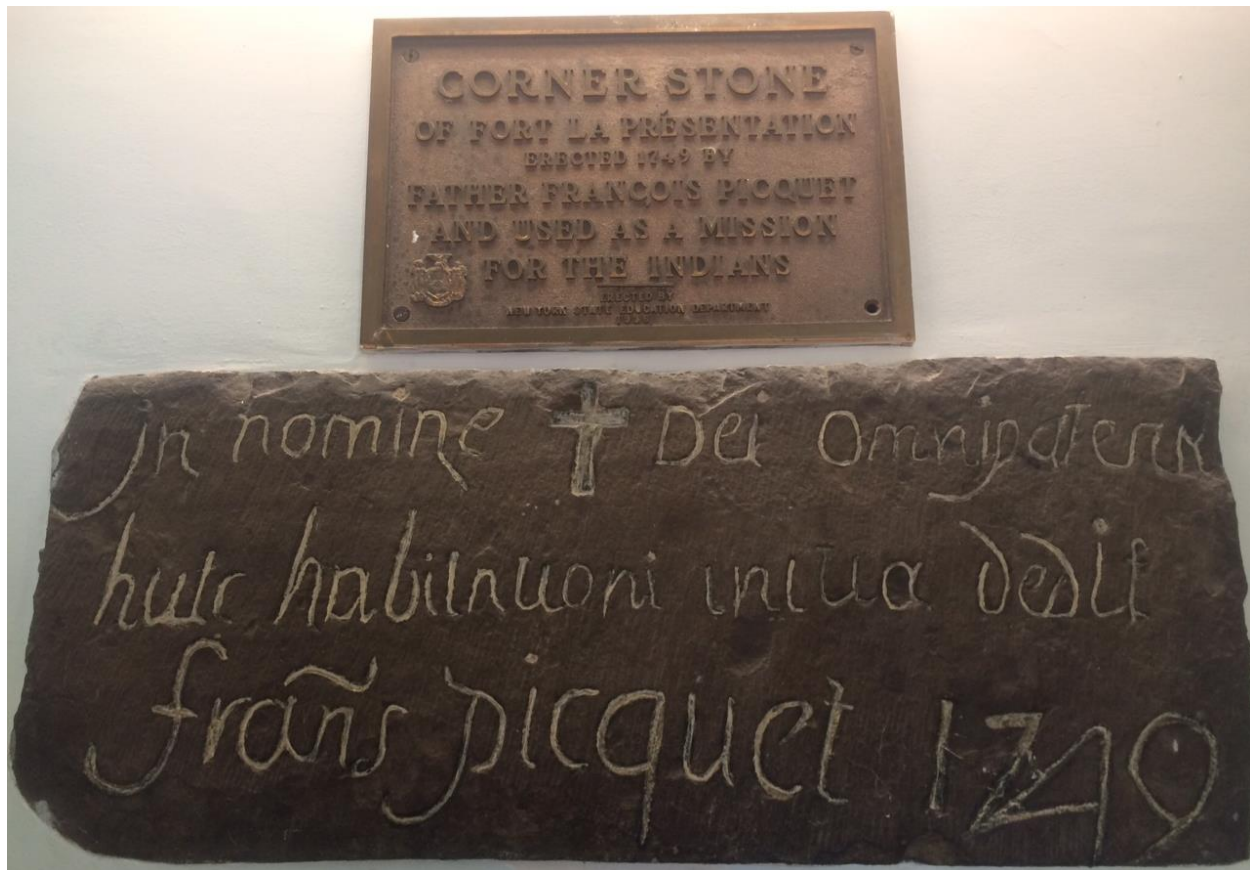 CORNER STONE
OF FORT LA PRÉSENTATION
ERECTED 1749 BY
FATHER FRANÇOIS PICQUET
AND USED AS A MISSION
FOR THE INDIANS
ERECTED BY
NEW YORK STATE EDUCATION DEPARTMENT
In nomine ✝ Dei Omnipotentis
huic habitationi initia dedit
frañs picquet 1749